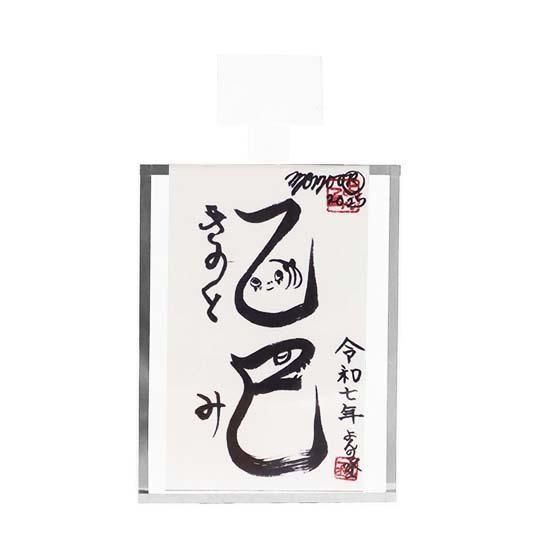 2025
乙巳
きのと
み
令和七年